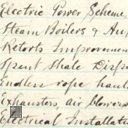 Electric Power Scheme
Steam Boilers &
Retorts Improvemen
Spent Shale Disp
Endless rope haul
Exhausters air blowers
Electrical Installatio